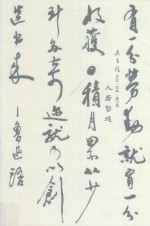 有一分劳勤就有一分
收获日积月累从少
到多奇迹就可以创
造出来
—鲁迅语